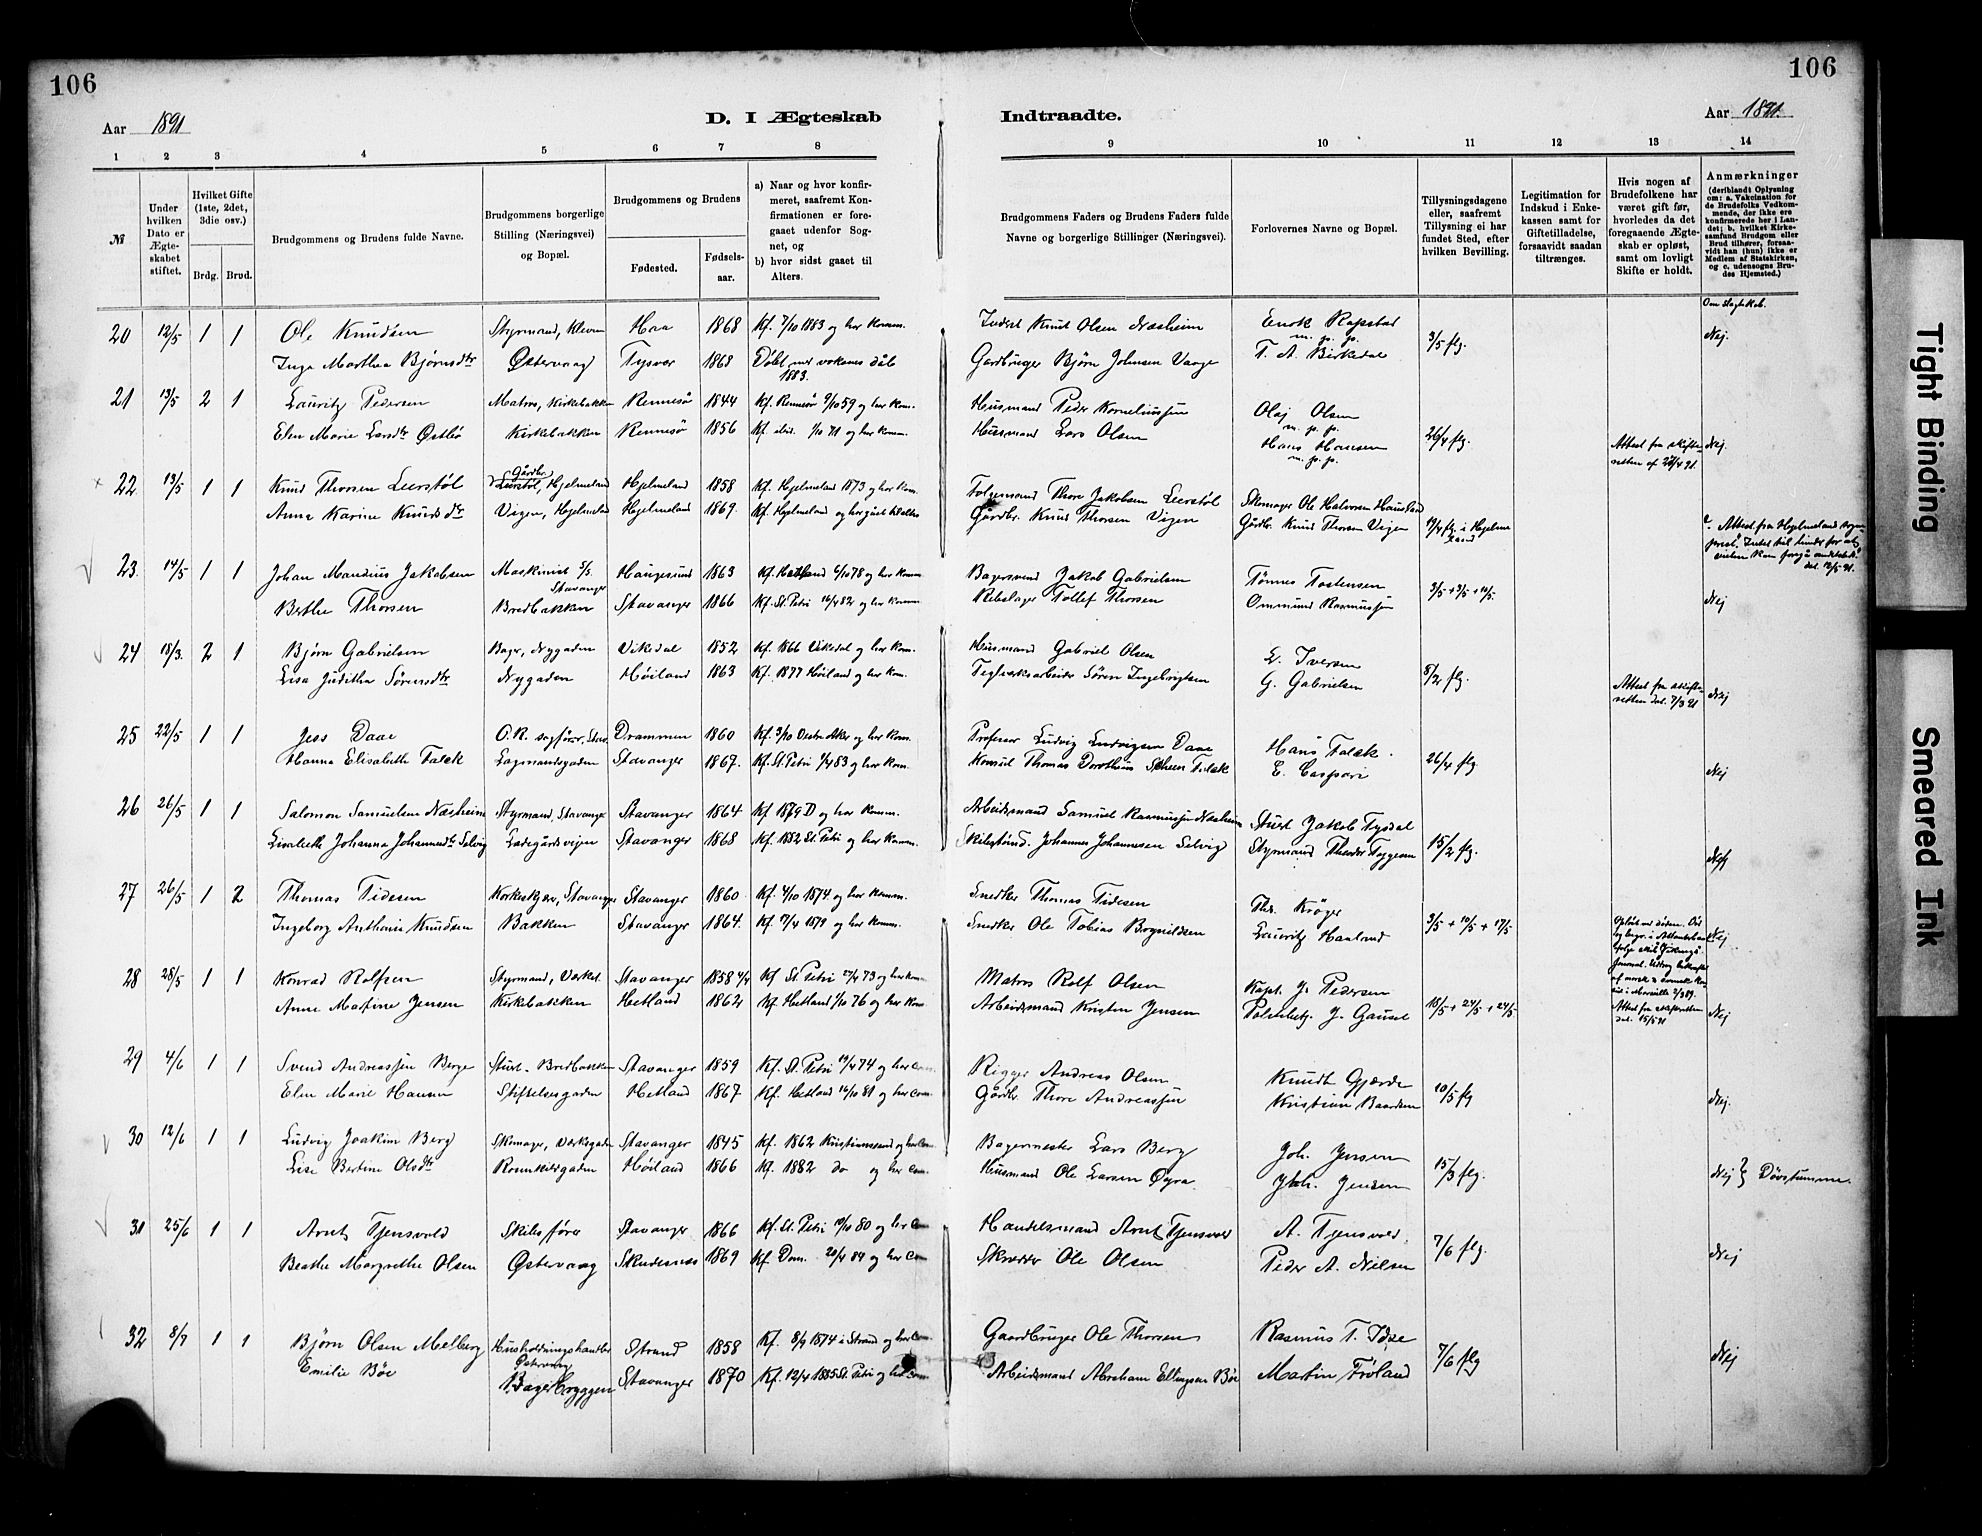 106
106
Aar 1891
D. I Ægteskab
Indtraadte.
Aar 1891.
1 2 3 4 5 6 7 8
9 10 11 12 13 14
№
Under hvilken Dato er Ægteskabet stiftet.
Hvilket Gifte (1ste, 2det, 3die osv.)
Brdg. Brud.
Brudgommens og Brudens fulde Navne.
Brudgommens borgerlige Stilling (Næringsvei) og Bopæl.
Brudgommens og Brudens
Fødested.
Fødselsaar.
a) Naar og hvor konfirmeret, saafremt Konfirmationen er foregaaet udenfor Sognet, og
b) hvor sidst gaaet til Alters.
Brudgommens Faders og Brudens Faders fulde Navne og borgerlige Stillinger (Næringsvei).
Forlovernes Navne og Bopæl.
Tillysningsdagene eller, saafremt Tillysning ei har fundet Sted, efter hvilken Bevilling.
Legitimation for Indskud i Enkekassen samt for Giftetilladelse, forsaavidt saadan tiltrænges.
Hvis nogen af Brudefolkene har været gift før, hvorledes da det foregaaende Ægteskab er opløst, samt om lovligt Skifte er holdt.
Anmærkninger
(deriblandt Oplysning om: a. Vakcination for de Brudefolks Vedkommende, der ikke ere konfirmerede her i Landet; b. hvilket Kirkesamfund Brudgom eller Brud tilhører, forsaavidt han (hun) ikke er Medlem af Statskirken, og c. udensogns Brudes Hjemsted.)
Om slagtskab.
20 12/5 1 1 Ole Knudsen Styrmand, Kleven Haa 1868 Kf. 7/10 1883 og her komm. Indst Knut Olsen Næsheim Enok Rapstad m. p. p. 3/5 flg. Nej.
Inga Marthea Bjørnsdtr Østervaag Tysvær 1868 Døbt ved voksnes dåb 1883. Gardbruger Bjørn Johnsen Vaage T. A. Birkedal
21 13/5 2 1 Lauritz Pedersen Matros, Kirkebakken Rennesø 1844 Kf. Rennesø 9/10 59 og her kom. Husmand Peder Korneliussen Olaj Olsen m. p. p. 26/4 flg. Nej.
Elen Marie Larsdtr Østbø Kirkebakken Rennesø 1856 Kf. ibid. 1/10 71 og her komm. Husmand Lars Olsen Hans Hansen m. p. p. Attest fra skifteretten af 28/4 91.
22 13/5 1 1 Knud Thorsen Leerstøl Gårdbr. Leerstøl, Hjelmeland Hjelmeland 1858 Kf. Hjelmeland 1873 og her kom. Følgemand Thore Jakobsen Leerstøl Skomager Ole Halvorsen
Anna Karine Knudsdtr Vigen, Hjelmeland Hjelmeland 1869. Kf. Hjelmeland og her gået til alters Gårdbr. Knud Thorsen Vigen Gårdbr. Knud Thorsen Vigen 19/4 flg. i Hjelmeland
Attest fra Hjelmeland sogneprest. Intet til hinder for at vielsen kan foregå andetsteds. dat. 12/5 91.
23. 14/5 1 1 Johan Mandius Jakobsen Maskinist S/S. Stavanger Haugesund 1863 Kf. Hetland 6/10 78 og her kom. Bagersvend Jakob Gabrielsen Tønnes Tostensen 3/5 + 3/5 + 10/5.
Berthe Thorsen Bredbakken Stavanger 1866 Kf. St. Petri 16/4 82 og her komm. Rebslager Tollef Thorsen Ommund Rasmussen Nej
24 18/3. 2 1 Bjørn Gabrielsen Bager, Nygaden Vikedal 1852 Kf. 1866 Vikedal og her kom. Husmand Gabriel Olsen L. Iversen 8/2 flg.
Lisa Juditha Sørensdtr Nygaden Høiland 1863 Kf. 1877 Høiland og her kom. Teglverksarbeider Søren Ingebrigtsen G. Gabrielsen Attest fra skifteretten dat. 7/3 91 Nej
25 22/5 1 1 Jess Daae O.R. sagfører, Stav. Drammen 1860 Kf. 3/10 Vestre Aker og her kom. Professor Ludvig Ludvigsen Daae Hans Falck. 26/4 flg
Hanna Elisabeth Falck Lagmandsgaden Stavanger 1867. Kf. St. Petri 1/4 83 og her kom. Konsul Thomas Dorotheus Scheen Falck E. Caspari Nej
26 26/5 1 1 Salomon Samuelsen Næsheim Styrmand, Stavanger Stavanger 1864 Kf 1879 D og her komm. Arbeidsmand Samuel Rasmussen Næsheim Stuert Jakob Tysdal 15/2 flg.
Lisabeth Johanna Johannesdtr Selvig Ladegårdsvejen Stavanger 1868 Kf. 1882 St. Petri og her komm. Johannes Johannesen Selvig Styrmand Theodor Tygesen Nej
27 26/5 1 2 Thomas Tidesen Korkeskjær, Stavanger Stavanger 1860 Kf. 4/10 1874 og her komm. Snedker Thomas Tidesen Thr. Krøger 3/5 + 10/5 + 17/5
Ingeborg Anthonie Knudsen Bakken Stavanger 1864. Kf. 7/4 1879 og her komm. Snedker Ole Tobias Bognildsen Lauritz Haaland Nej.
28 28/5 1 1 Konrad Rolfsen Styrmand, Verkst. Stavanger 1858 4/4 Kf St. Petri 27/4 73 og her kom Matros Rolf Olsen Kapt. J. Pedersen 18/5 + 24/5 + 24/5
Anne Martine Jensen Kirkebakken Hetland 1862 Kf. Hetland 1/10 76 og her kom Arbeidsmand Kristen Jensen J. Gausel Attest fra skifteretten dat. 15/5 91 Nej
29 4/6 1 1 Svend Andreassen Berge Stuert. Bredbakken Stavanger 1859 Kf. St. Petri 19/4 74 og her com. Rigger Andreas Olsen Knudt Gjærde 10/5 flg
Elen Marie Hansen Stiftelsesgaden Hetland 1867 Kf. Hetland 16/10 81 og her com Gårdbr. Thore Andreassen Kristian Baardsen Nej.
30 12/6 1 1 Ludvig Joakim Berg Skomager, Verksgaden Stavanger 1845 Kf. 1862 Kristianssand og her com Bagermester Lars Berg Joh. Jensen 15/3 flg.
Lise Bertine Olsdtr Rosenkildgaden Høiland 1866 Kf. 1882 do og her com. Husmand Ole Larsen Øgra Joh. Jensen Nej } Døvstumme.
31 25/6 1 1 Arnt Tjensvold Skibsfører Stavanger 1866 Kf. St. Petri 10/10 80 og her com Handelsmand Arnt Tjensvold A. Tjensvold. 7/6 flg.
Beathe Margrethe Olsen Østervaag Skudesnes 1869 Kf. Dom. 20/4 84 og her com Skrædder Ole Olsen Peder A. Nielsen Nej
32 8/7 1 1 Bjørn Olsen Melberg Husholdningshandler Østervaag Strand 1858 Kf. 8/9 1874 i Strand og her com Gaardbruger Ole Thorsen Rasmus T. Idse 7/6 flg Nej
Emilie Bøe Bagerbryggen Stavanger 1870 Kf. 12/4 1885 St. Petri og her com Arbeidsmand Abraham Ellingsen Bøe Martin Frøland
Tight Binding
Smeared Ink